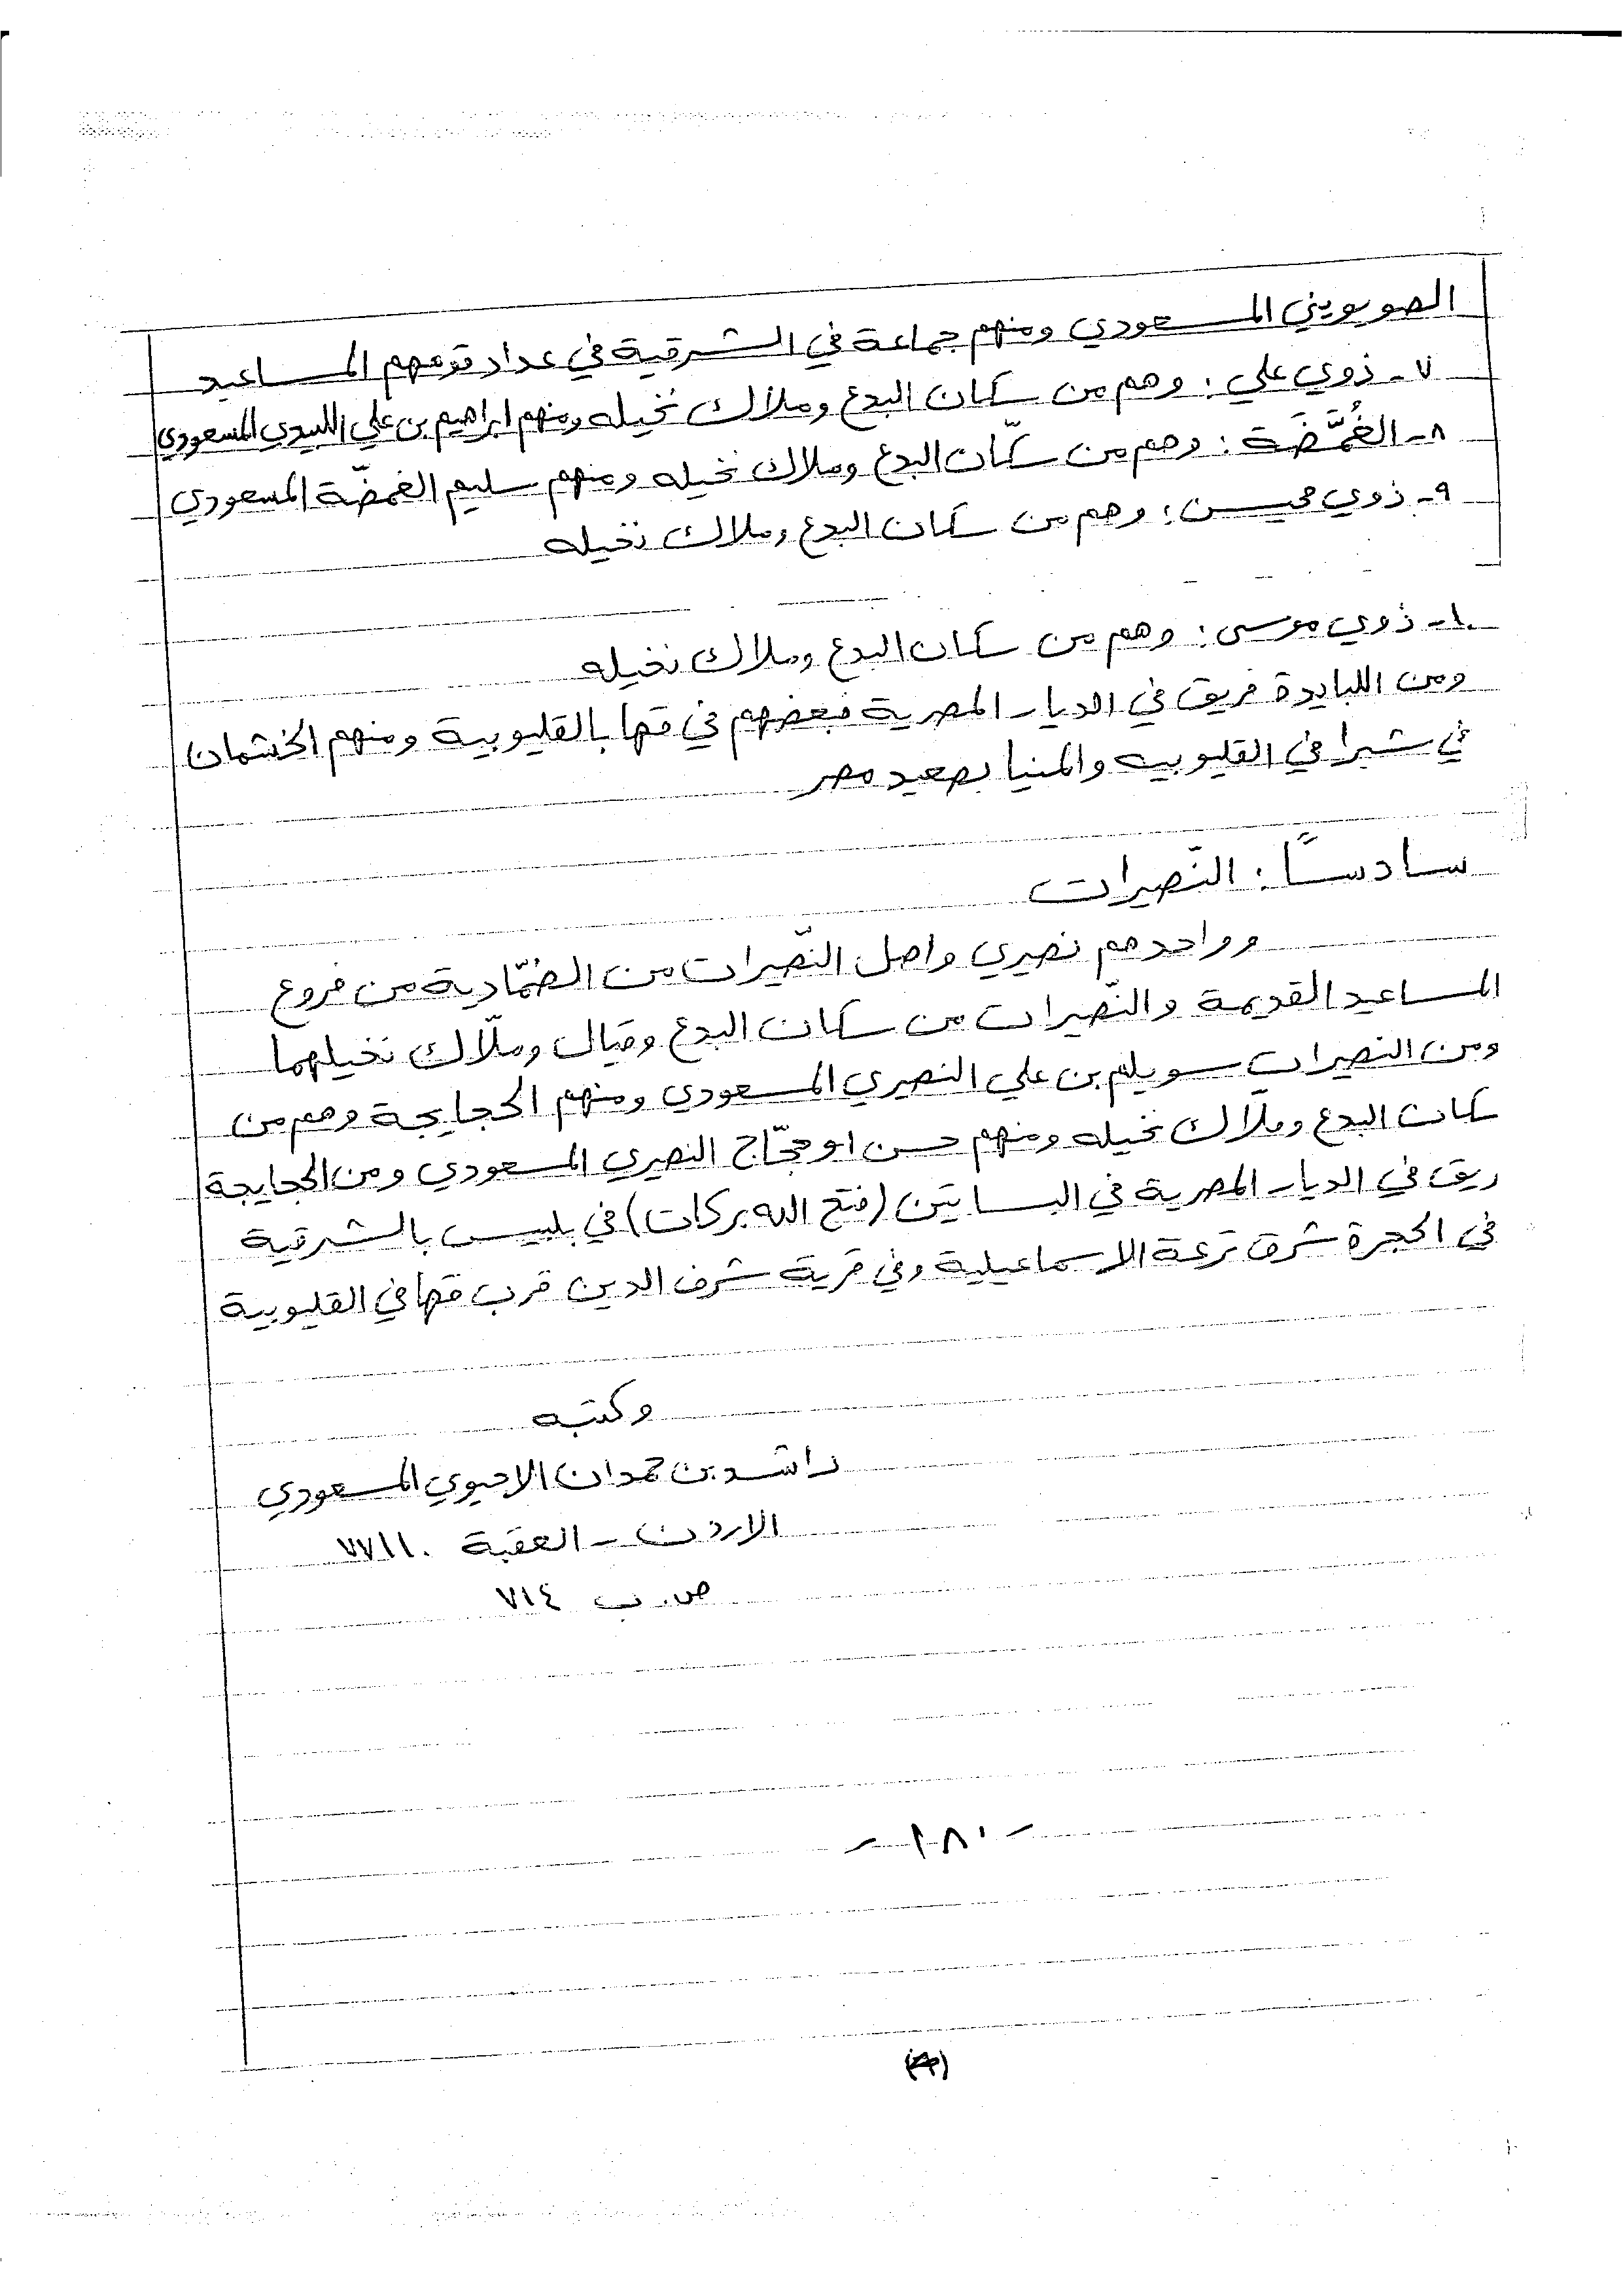 الصويويني المسعودي ومنهم جماعة في الشرقية في عداد قومهم المساعيد
٧- ذوي علي: وهم من سكان البدع وملاك نخيله ومنهم ابراهيم بن علي اللبيدي المسعودي
٨- الغُمَّضَة: وهم من سكّان البدع وملاك نخيله ومنهم سليم الغمضّة المسعودي
٩- ذوي محيسن: وهم من سكان البدع وملاك نخيله
١٠- ذوي موسى: وهم من سكان البدع وملاك نخيله
ومن اللبايدة فريق في الديار المصرية فبعضهم في قها بالقليوبية ومنهم الخشمان
في شبرا في القليوبيه والمنيا بصعيد مصر
سادساً: النّصيرات
وواحدهم نصيري واصل النّصيرات من الضمّادية من فروع
المساعيد القديمة والنّصيرات من سكان البدع وقيال وملّاك نخيلهما
ومن النصيرات سويلم بن علي النصيري المسعودي ومنهم الحجايجة وهم من
سكان البدع وملّاك نخيله ومنهم حسن ابو حجّاج النصيري المسعودي ومن الحجايجة
ريق في الديار المصرية في البساتين (فتح الله بركات) في بلبيس بالشرقية
في الحجرة شرق ترعة الاسماعيلية وفي قرية شرف الدين قرب قها في القليوبية
وكتبه
راشد بن حمدان الاحيوي المسعودي
الاردن - العقبة ٧٧١١٠
ص.ب ٧١٤